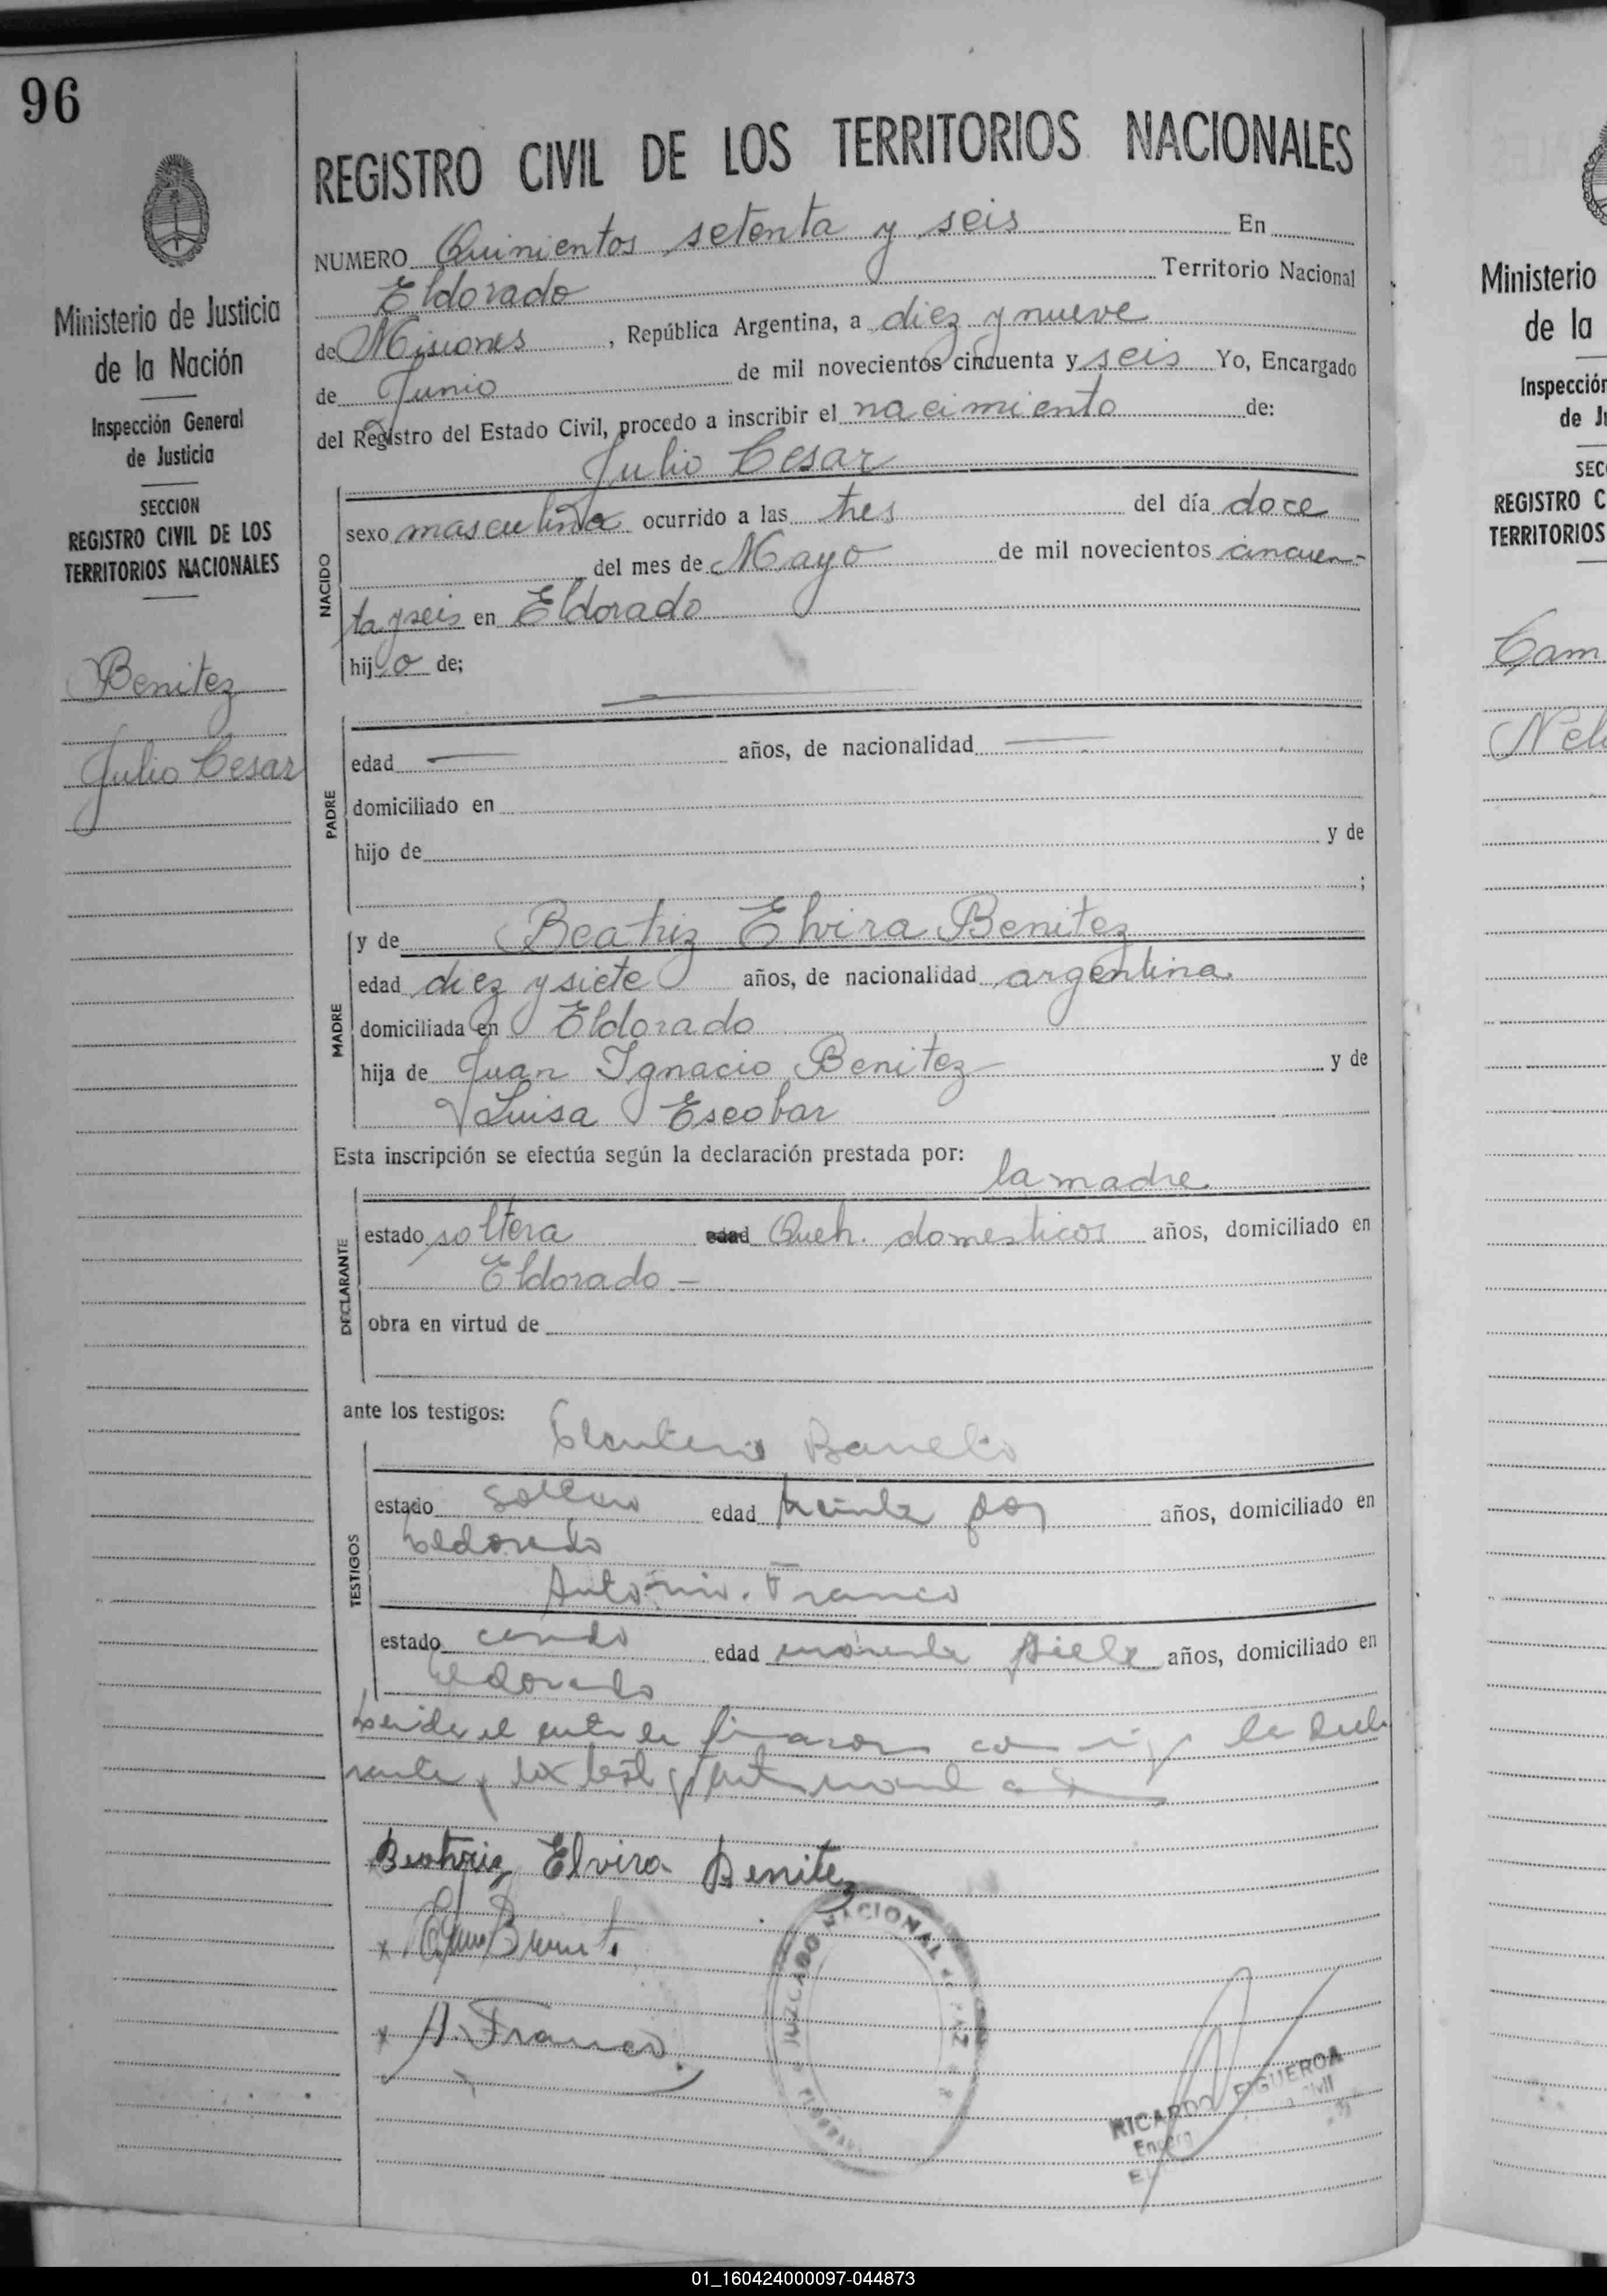 96
REGISTRO CIVIL DE LOS TERRITORIOS NACIONALES
NUMERO Quinientos setenta y seis En
Eldorado Territorio Nacional
de Misiones, República Argentina, a diez y nueve
de Junio de mil novecientos cincuenta y seis Yo, Encargado
del Registro del Estado Civil, procedo a inscribir el nacimiento de:
Julio Cesar
NACIDO
sexo masculino ocurrido a las tres del día doce
del mes de Mayo de mil novecientos cincuen-
ta y seis en Eldorado
hijo de;
PADRE
edad — años, de nacionalidad —
domiciliado en
hijo de y de
;
MADRE
y de Beatriz Elvira Benitez
edad diez y siete años, de nacionalidad argentina
domiciliada en Eldorado
hija de Juan Ignacio Benitez y de
Luisa Escobar
Esta inscripción se efectúa según la declaración prestada por:
la madre
DECLARANTE
estado soltera edad Queh. domesticos años, domiciliado en
Eldorado -
obra en virtud de
ante los testigos:
TESTIGOS
estado soltero edad treinta dos años, domiciliado en
Eldorado
Antonio Franco
estado casado edad siete años, domiciliado en
Eldorado
Beatriz Elvira Benitez
x
x A. Franco
JUZGADO NACIONAL DE PAZ
RICARDO FIGUEROA
Ministerio de Justicia
de la Nación
Inspección General
de Justicia
SECCION
REGISTRO CIVIL DE LOS
TERRITORIOS NACIONALES
Benitez
Julio Cesar
Ministerio
de la
Inspección
de Ju
SEC
REGISTRO C
TERRITORIOS
Cam
Nel
01_160424000097-044873